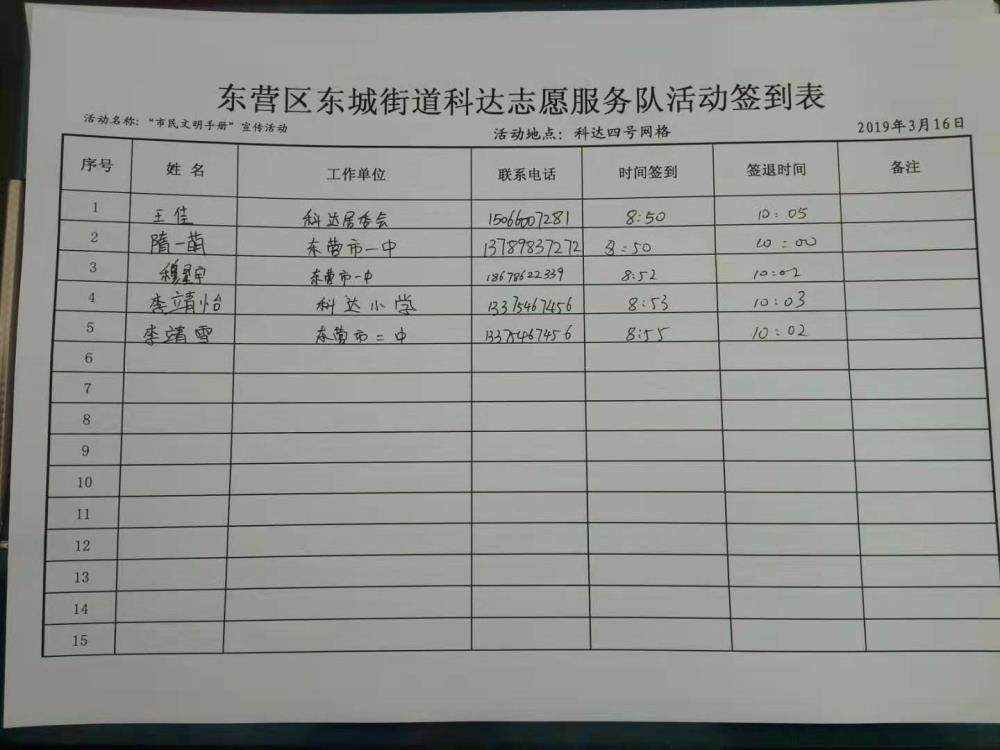 东营区东城街道科达志愿服务队活动签到表
活动名称：“市民文明手册”宣传活动 活动地点：科达四号网格 2019年3月16日
序号 姓名 工作单位 联系电话 时间签到 签退时间 备注
1 王佳 科达居委会 15066007281 8:50 10:05
2 隋一萌 东营市一中 13789837272 8:50 10:00
3 东营市一中 18678622339 8:52 10:02
4 李靖怡 科达小学 13375467456 8:53 10:03
5 李靖雪 东营市二中 13375467456 8:55 10:02
6
7
8
9
10
11
12
13
14
15